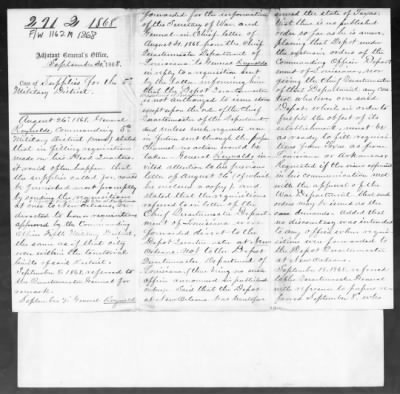 211 D 1868
Adjutant General's Office,
September 1868.
Case of Supplies for the 5th
Military District.
August 26th 1868. General
Reynolds, Commanding 5th
Military District, stated
that in filling requisitions
made on his Head Quarters
it would often happen that
the supplies called for could
be furnished most promptly
by sending the requisitions
to New Orleans,
directed to honor requisitions
approved by the Commanding
Officer Fifth Military District,
the same as if that city
were within the territorial
limits of said District.
September 8. 1868, referred to
the Quartermaster General for
remark.
September General Reynolds
forwarded for the information
of the Secretary of War and
General-in-Chief letter of
August 31. 1868, from the Chief
Quartermaster Department of
Louisiana to General Reynolds
in reply to a requisition sent
by the latter informing him
that the Depot Quartermaster
is not authorized to issue stores
except upon the order of the Chief
Quartermaster of the Department
and unless such requisitions
are sent through the proper
channel no action would be
taken. General Reynolds in-
vited attention to his previous
letter of August 26th of which
he enclosed a copy, and
stated that the requisitions
referred to in letter of the
Chief Quartermaster Depart-
ment of Louisiana were
forwarded direct to the
Depot Quartermaster at New
Orleans not to the Chief
Quartermaster Department of
Louisiana, there being no such
officer announced in published
orders. Said that the Depot
at New Orleans
the State of Texas.
that there is no published
order so far as he is aware,
placing that Depot under
the exclusive orders of the
Commanding Officer Depart-
ment of Louisiana, nor
giving the Chief Quartermaster
of that Department any con-
trol whatever over said
Depot, which in order to
fulfill the object of its
establishment, must be
as ready to fill requisi-
tions from Texas as from
Louisiana or Arkansas.
Requested if the views expressed
in his communication met
with the approval of the
War Department that such
orders may be issued as the
case demands. Added that
no discourtesy was intended
to any officer when requisi-
tions were forwarded to
the Depot Quartermaster
at New Orleans.
September 18. 1868, referred
to the Quartermaster General
with reference to papers re-
September 8.